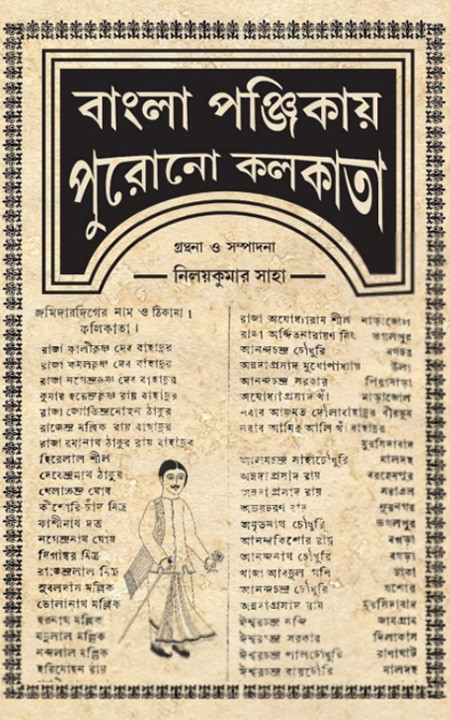 বাংলা পঞ্জিকায়
পুরোনো কলকাতা
গ্রন্থনা ও সম্পাদনা
নিলয়কুমার সাহা
জমিদারদিগের নাম ও ঠিকানা।
কলিকাতা।
রাজা কালীকৃষ্ণ দেব বাহাদুর
রাজা কমলকৃষ্ণ দেব বাহাদুর
রাজা নগেন্দ্রকৃষ্ণ দেব বাহাদুর
কুমার হরেন্দ্রকৃষ্ণ রায় বাহাদুর
রাজা জোতিন্দ্রমোহন ঠাকুর
রাজেন্দ্র মল্লিক রায় বাহাদুর
রাজা রমানাথ ঠাকুর রায় বাহাদুর
হিরেলাল শীল
দেবেন্দ্রনাথ ঠাকুর
খেলাতচন্দ্র ঘোষ
কীশোরি চাঁদ মিত্র
কাশীনাথ দত্ত
নগেন্দ্রনাথ ঘোষ
দিগাম্বর মিত্র
রাজেন্দ্রলাল মিত্র
সুবলদাস মল্লিক
ভোলানাথ মল্লিক
হরনাথ মল্লিক
যদুলাল মল্লিক
নন্দলাল মল্লিক
হরিমোহন রায়
রাজা অযোধ্যারাম শীল নাড়াজোল
রাজা অদিতনারায়ণ সিং ভাগলপুর
আনন্দচন্দ্র চৌধুরি বগুড়া
অন্নদাপ্রসাদ মুখোপাধ্যায় উলা
আনন্দচন্দ্র সরকার
অযোধ্যাপ্রসাদ খাঁ নাড়াজোল
নবাব আজমত দৌলাবাহাদুর বীরভূম
নবাব আমির আলি খাঁ বাহাদুর
মুরসিদাবাদ
সাহাচৌধুরি মালদহ
অন্নদা প্রসাদ রায় বরহমপুর
অন্নদা প্রসাদ রায়
অভয়চরণ দাস সুরনগর
অমৃতনাথ চৌধুরি ভাগলপুর
আনন্দকিশোর রায় বগুড়া
আনন্দনাথ চৌধুরি বগুড়া
খাজা আবদুল গনি ঢাকা
আনন্দচন্দ্র চৌধুরি যশোর
অন্নদাপ্রসাদ রায় মুরসিদাবাদ
ঈশ্বরচন্দ্র নন্দি জামগ্রাম
ঈশ্বরচন্দ্র সরকার দিলাকাস
ঈশ্বরচন্দ্র পালচৌধুরি রাণাঘাট
ঈশ্বরচন্দ্র রায়চৌধুরি মালদহ